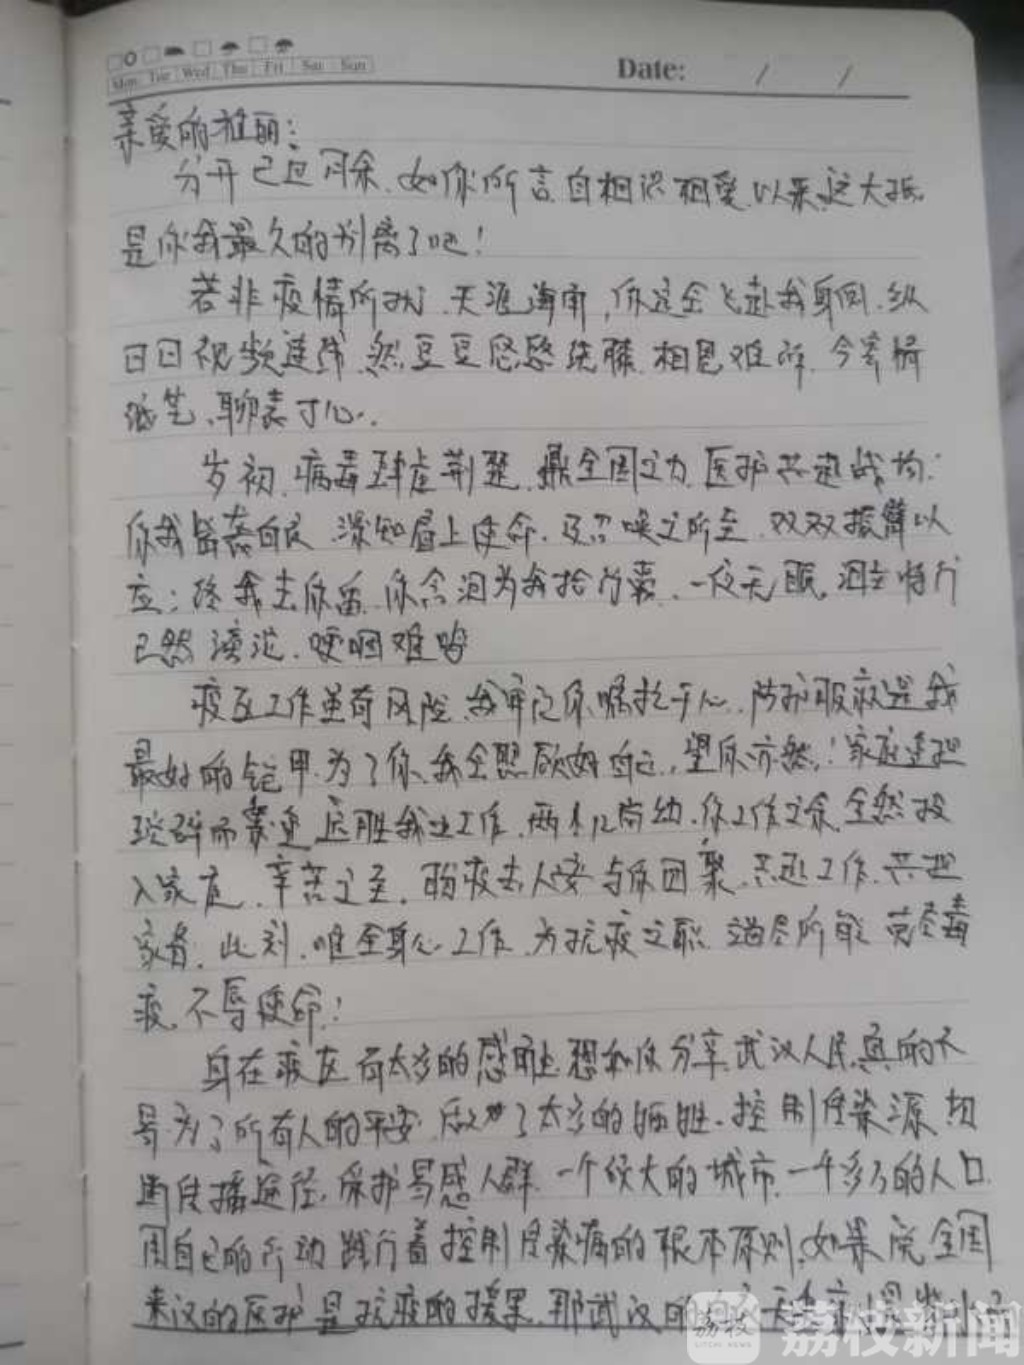 Mon Tue Wed Thu Fri Sat Sun
Date: / /
亲爱的雅丽：
分开已过月余，如你所言，自相识相爱以来，这大抵
是你我最久的别离了吧！
若非疫情所扰，天涯海南，你定会飞赴我身側，纵
日日视频连线，然豆豆愁愁绕膝，相思难诉，今寄情
纸笔，聊表寸心。
岁初，病毒肆虐荆楚，鼎全国之力，医护共赴战场；
你我皆袭白衣，深知肩上使命，及召唤之所至，双双振臂以
应；终我去你留，你含泪为我拾行囊，一夜无眠，泪立特行
已然滂沱，哽咽难鸣
疫区工作虽有风险，我牢记你嘱托于心，防护服就是我
最好的铠甲，为了你，我会照顾好自己，望你亦然；家庭连理
琐碎而繁重，远胜我此工作，两个儿尚幼，你工作之余，全然投
入家庭，辛苦之至，盼疫去人安，与你团聚，共赴工作，共担
家眷，此刻，唯全身心工作，为抗疫之职，竭尽所能，克尽毒
疫，不辱使命！
身在疫区，有太多的感触，想和你分享，武汉人民，真的不
易，为了所有人的平安，做出了太多的牺牲。控制传染源，切
断传播途径，保护易感人群，一个较大的城市，一千多万的人口，
用自己的行动践行着控制传染病的根本原则，如果说全国
来汉的医护是抗疫的援军，那武汉的
荔枝
LITCHI NEWS
荔枝新闻